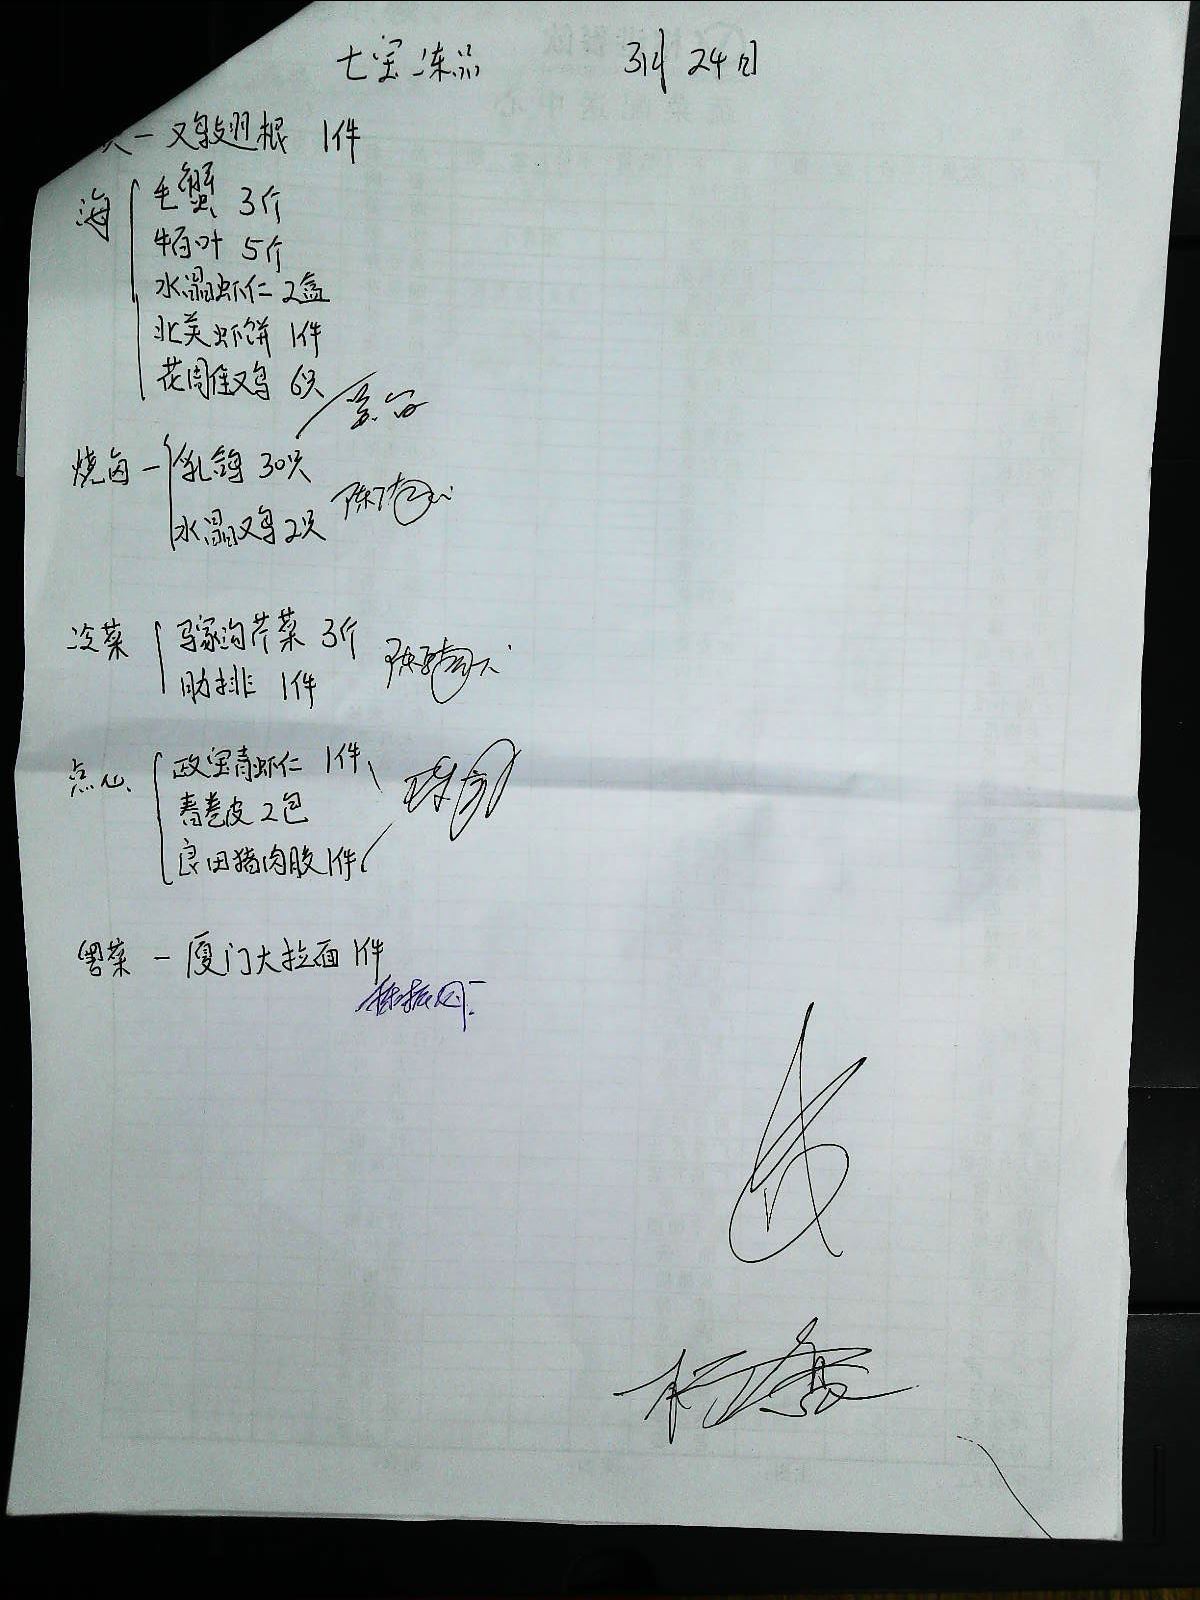 七宝冻品 3月24日
一 鸡翅根 1件
海 毛蟹 3斤
牛百叶 5斤
水晶虾仁 2盒
北美虾饼 1件
花雕鸡 6只
烧卤 — 乳鸽 30只
水晶鸡 2只
冷菜 马家沟芹菜 3斤
肋排 1件
点心 政宝青虾仁 1件
春卷皮 2包
良田猪肉胶 1件
粤菜 — 厦门大拉面 1件